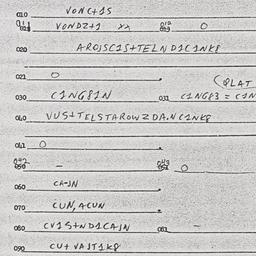 010 VONC+1S
011 VONDZ+1 XX 012 O
020 AROJSC1S+TELND1C1NK8
021 O
(QLAT
030 C1NG81N 031 C1NG83 = C1N
040 VUS+TELSTAROWZDA.NC1NK8
041 O
042 - 043 O
060 CA-JN
070 CUN, ACUN
080 CV1S+ND1CAJN 081 -
090 CU+VAJT1K8